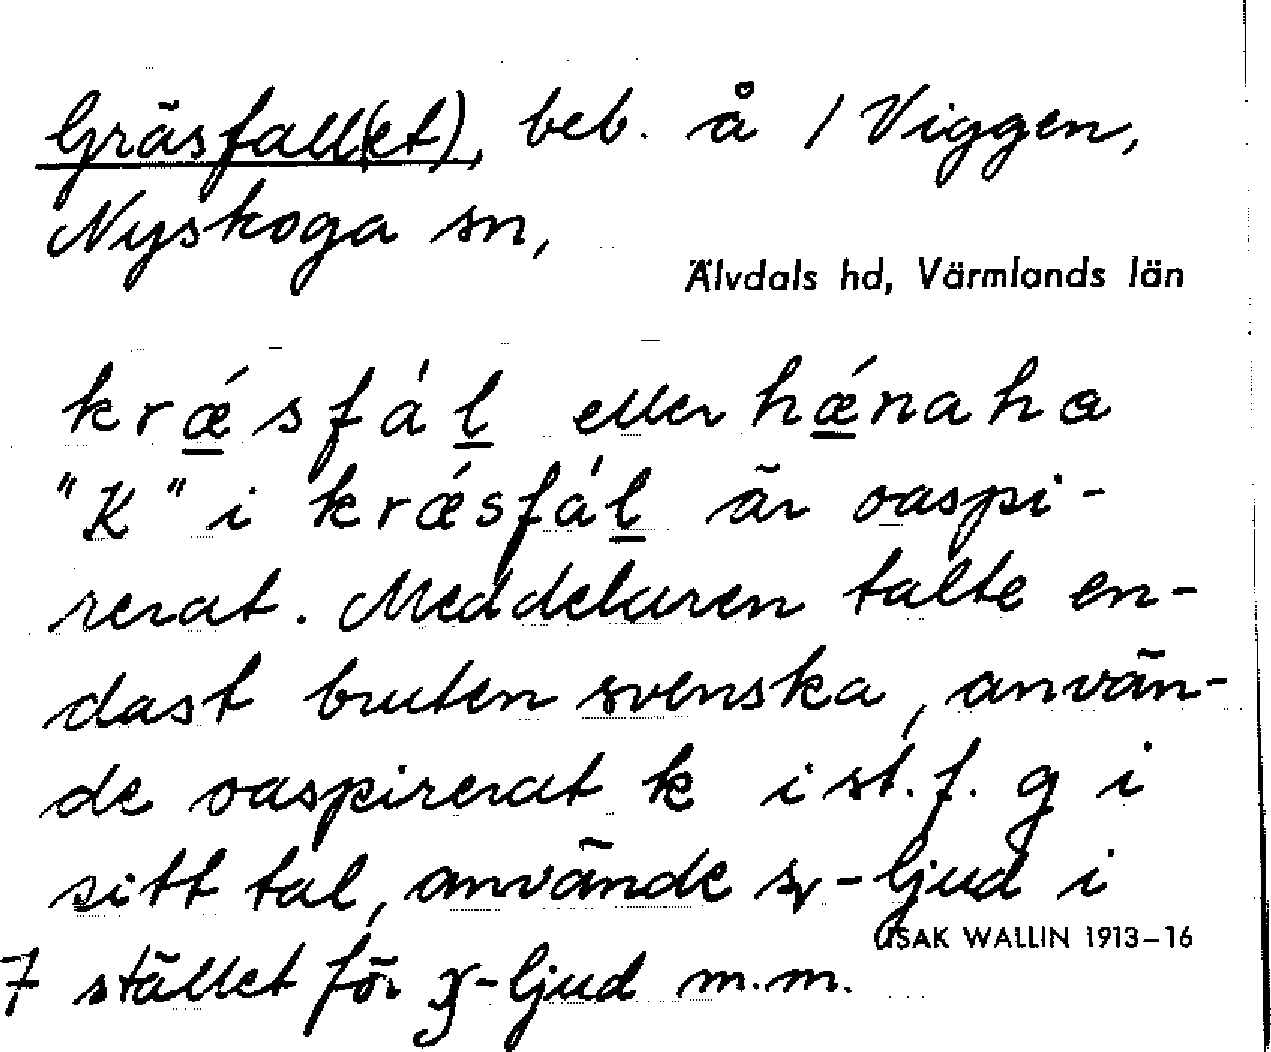 Gräsfall(et), beb. å / Viggen,
Nyskoga sn,
Älvdals hd, Värmlands län
krǽsfàl eller hǽnaha
"K" i krǽsfàl är oaspi-
rerat. Meddelaren talte en-
dast bruten svenska, använ-
de oaspirerat k i st. f. g i
sitt tal, använde s-ljud i
ISAK WALLIN 1913–16
7 stället för -ljud m.m.